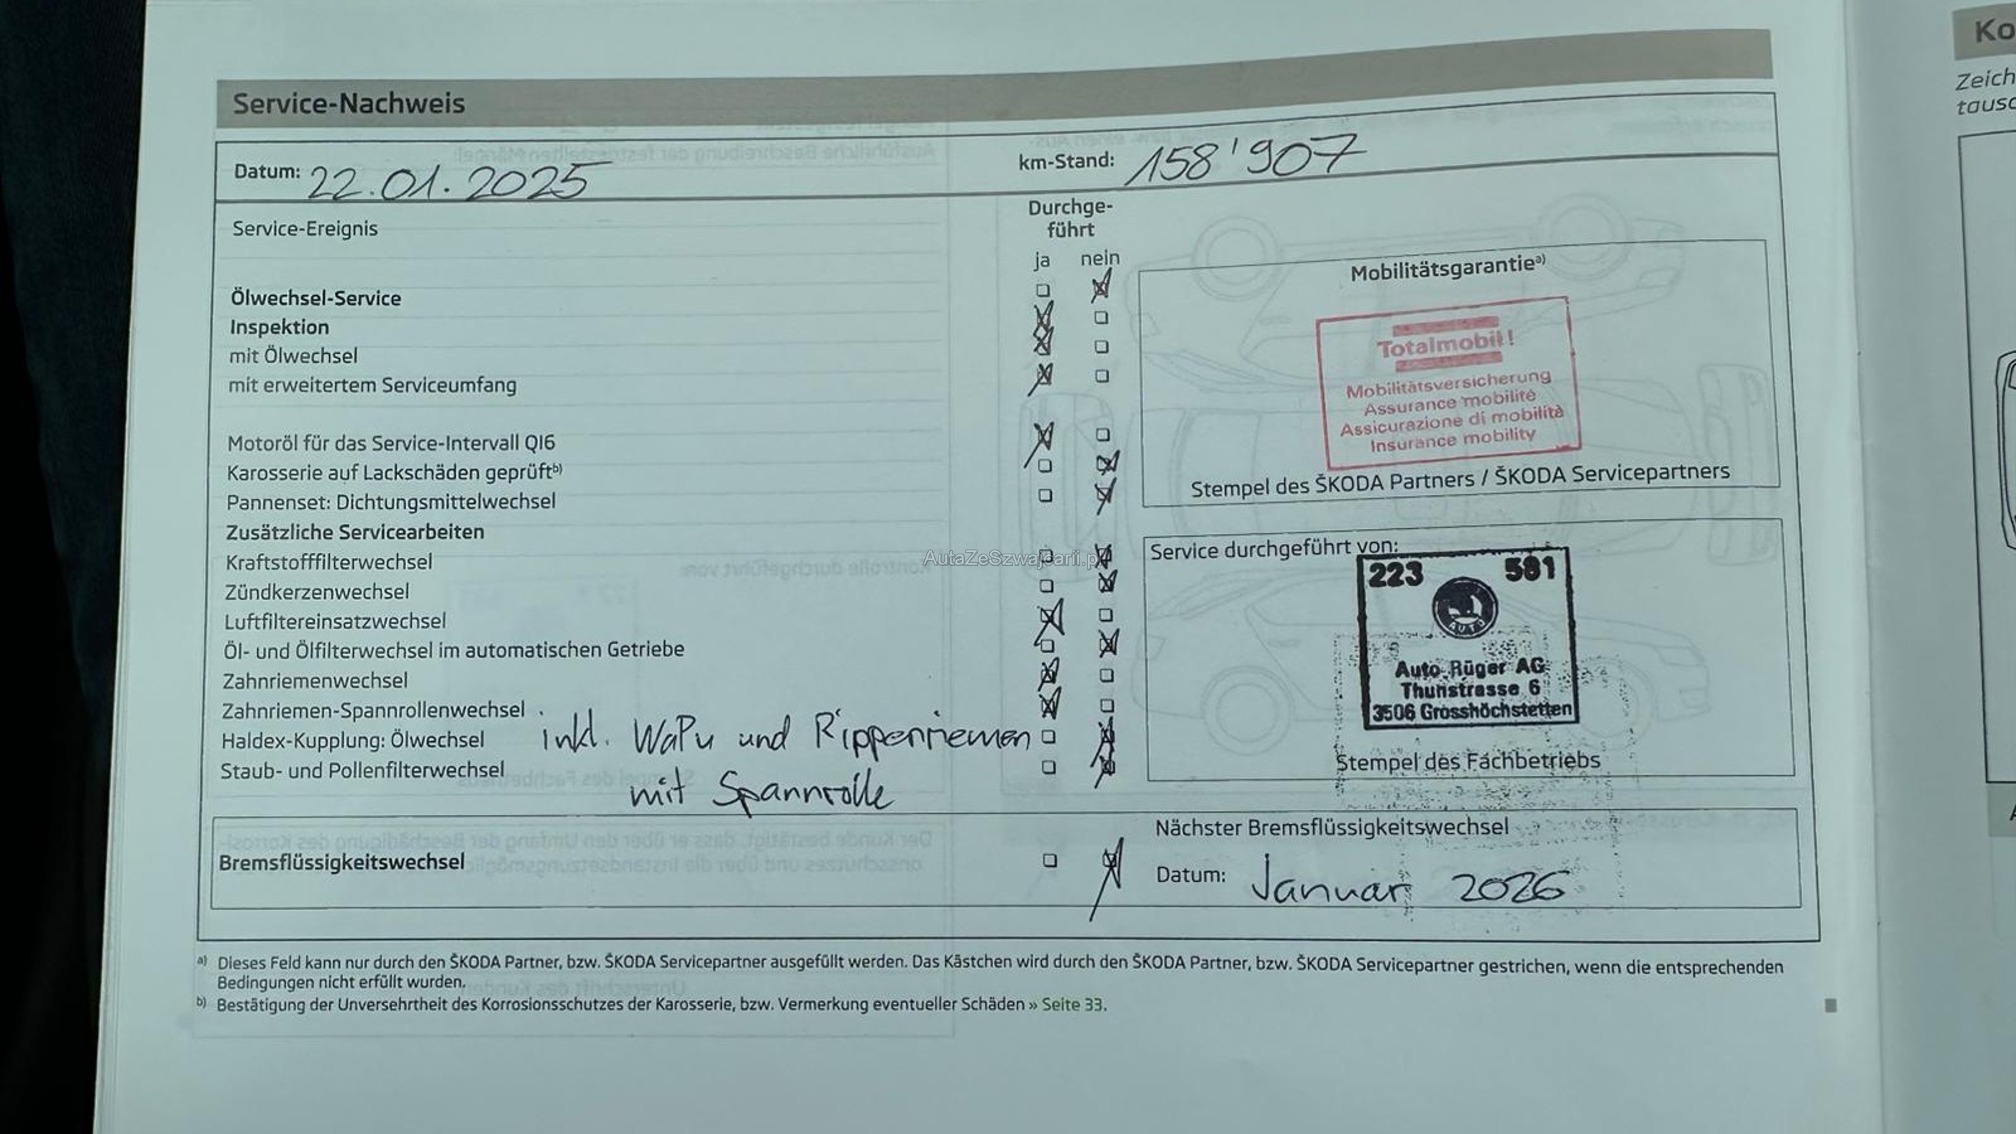 Service-Nachweis
Datum: 22.01.2025
km-Stand: 158'907
Service-Ereignis
Durchge-
führt
ja nein
Ölwechsel-Service
Inspektion
mit Ölwechsel
mit erweitertem Serviceumfang
Motoröl für das Service-Intervall QI6
Karosserie auf Lackschäden geprüft b)
Pannenset: Dichtungsmittelwechsel
Zusätzliche Servicearbeiten
Kraftstofffilterwechsel
Zündkerzenwechsel
Luftfiltereinsatzwechsel
Öl- und Ölfilterwechsel im automatischen Getriebe
Zahnriemenwechsel
Zahnriemen-Spannrollenwechsel
Haldex-Kupplung: Ölwechsel
inkl. WaPu und Rippenriemen
Staub- und Pollenfilterwechsel
mit Spannrolle
Mobilitätsgarantie a)
Totalmobil!
Mobilitätsversicherung
Assurance mobilité
Assicurazione di mobilità
Insurance mobility
Stempel des ŠKODA Partners / ŠKODA Servicepartners
Service durchgeführt von:
223 581
AUTO
Auto Rüger AG
Thunstrasse 6
3506 Grosshöchstetten
Stempel des Fachbetriebs
Bremsflüssigkeitswechsel
Nächster Bremsflüssigkeitswechsel
Datum: Januar 2026
a) Dieses Feld kann nur durch den ŠKODA Partner, bzw. ŠKODA Servicepartner ausgefüllt werden. Das Kästchen wird durch den ŠKODA Partner, bzw. ŠKODA Servicepartner gestrichen, wenn die entsprechenden
Bedingungen nicht erfüllt wurden.
b) Bestätigung der Unversehrtheit des Korrosionsschutzes der Karosserie, bzw. Vermerkung eventueller Schäden » Seite 33.
Ko
Zeich
tausc